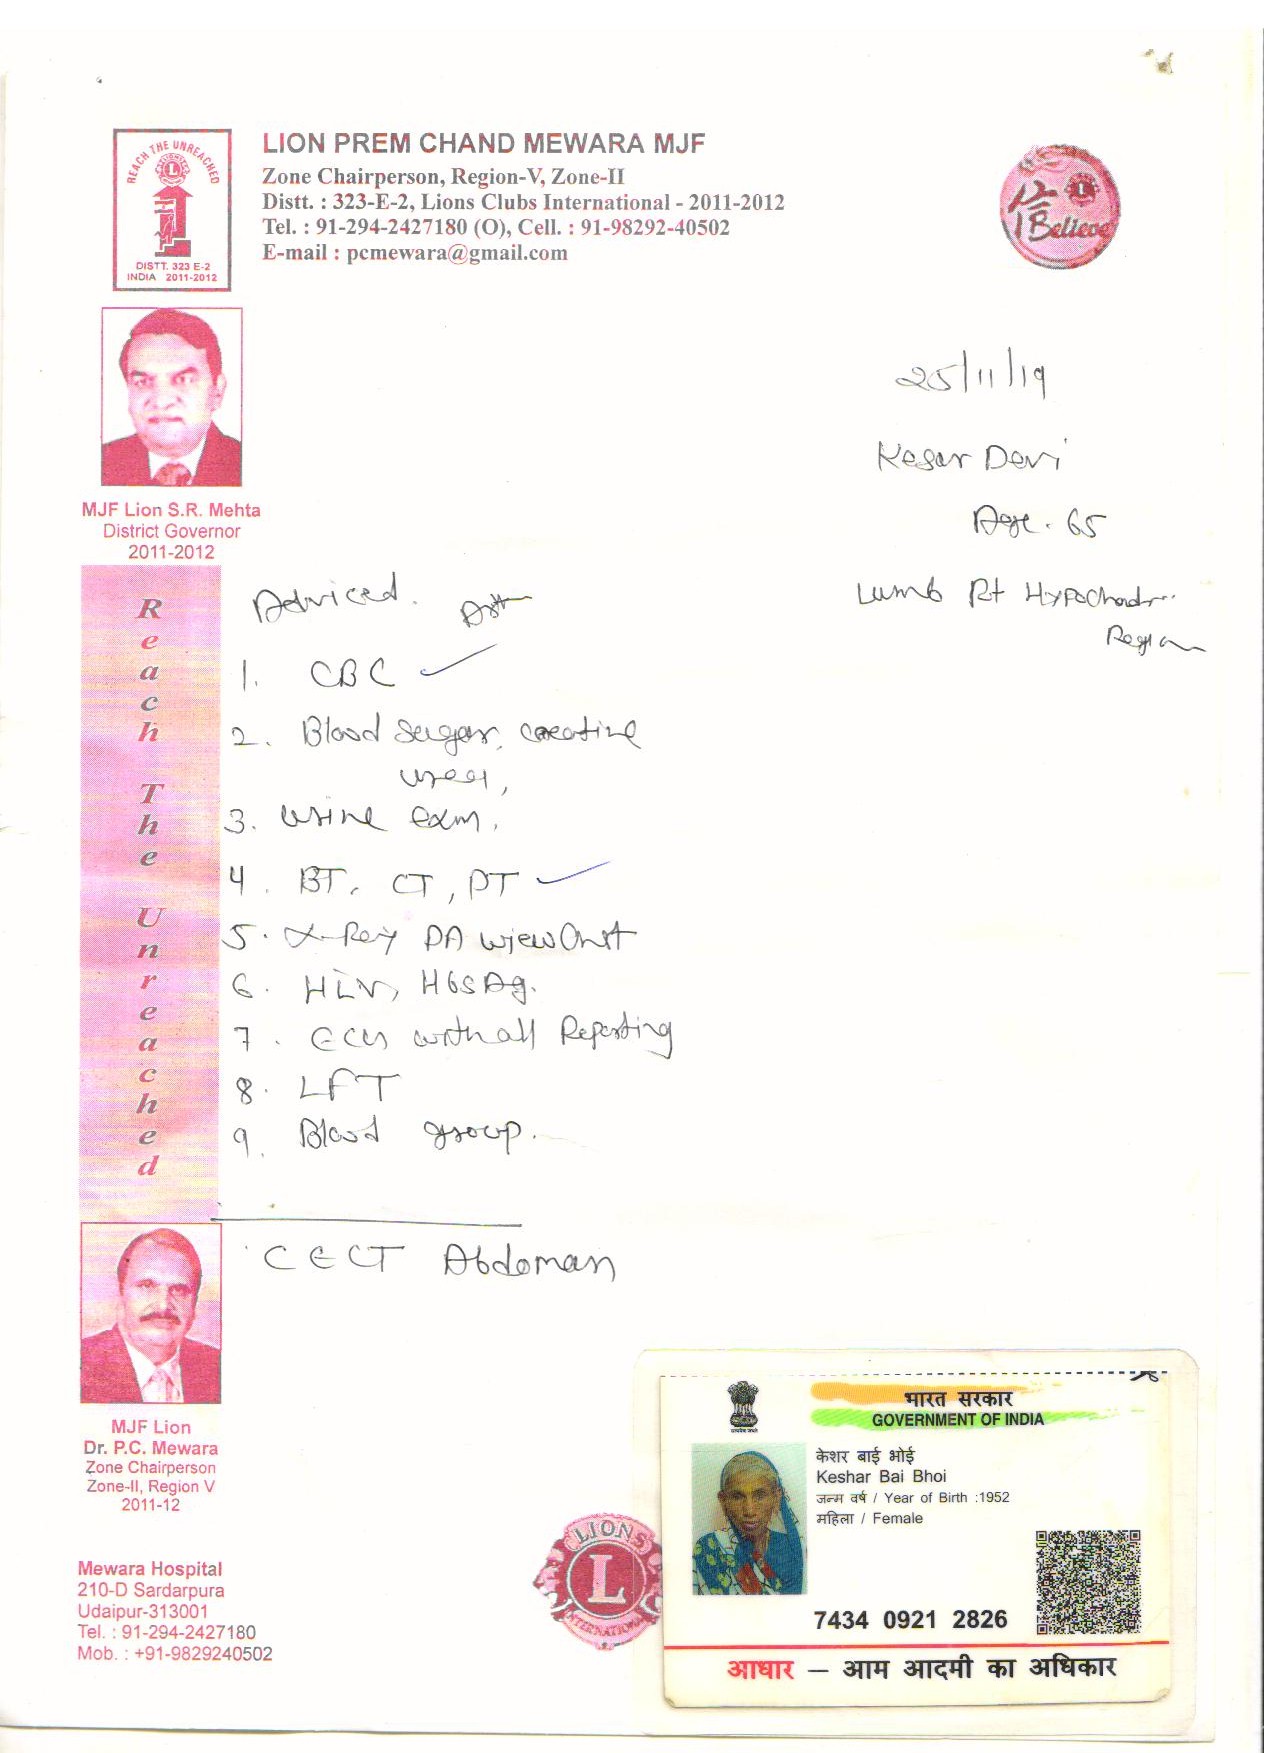 REACH THE UNREACHED
DISTT. 323 E-2
INDIA 2011-2012
LION PREM CHAND MEWARA MJF
Zone Chairperson, Region-V, Zone-II
Distt. : 323-E-2, Lions Clubs International - 2011-2012
Tel. : 91-294-2427180 (O), Cell. : 91-98292-40502
E-mail : pcmewara@gmail.com
I Believe
MJF Lion S.R. Mehta
District Governor
2011-2012
25/11/19
Kesar Devi
Age. 65
Lumb Rt Hypochondr..
Region
Reach The Unreached
Adviced.
1. CBC
2. Blood Sugar, creatine
urea,
3. Urine Exm.
4. BT, CT, PT
5. X-Ray PA view Chest
6. HIV, HbsAg.
7. ECG with all Reporting
8. LFT
9. Blood group.
CECT Abdoman
MJF Lion
Dr. P.C. Mewara
Zone Chairperson
Zone-II, Region V
2011-12
Mewara Hospital
210-D Sardarpura
Udaipur-313001
Tel. : 91-294-2427180
Mob. : +91-9829240502
LIONS
L
INTERNATIONAL
भारत सरकार
GOVERNMENT OF INDIA
केशर बाई भोई
Keshar Bai Bhoi
जन्म वर्ष / Year of Birth :1952
महिला / Female
7434 0921 2826
आधार – आम आदमी का अधिकार